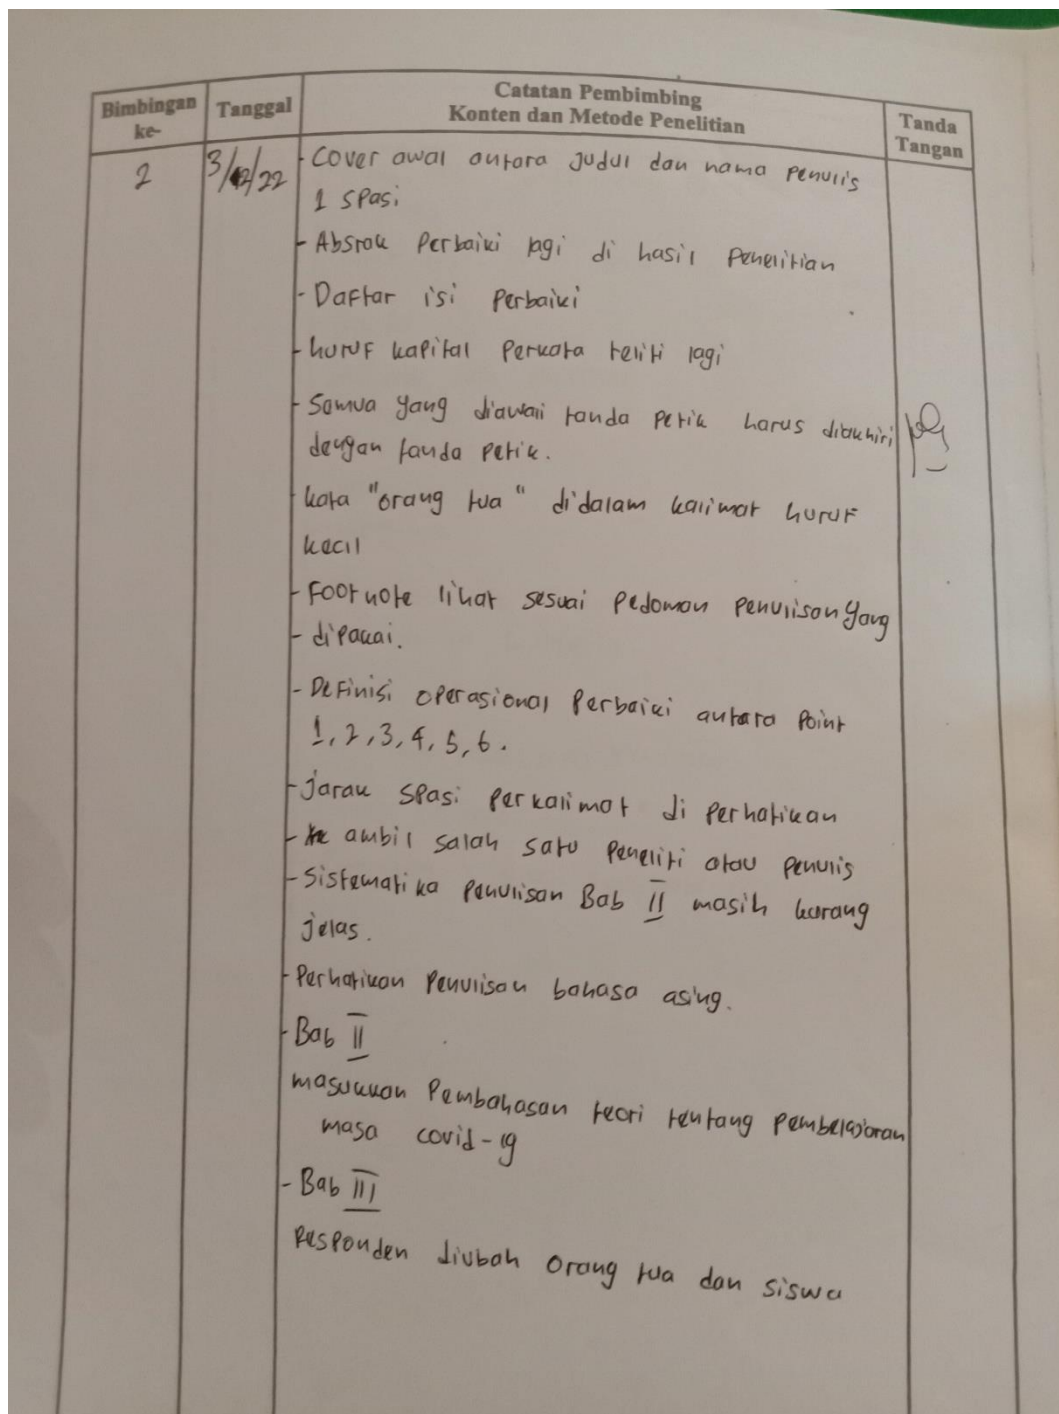 Bimbingan ke-
Tanggal
Catatan Pembimbing
Konten dan Metode Penelitian
Tanda Tangan
2
- Cover awal antara judul dan nama penulis
1 spasi
- Absrak Perbaiki lagi di hasil Penelitian
- Daftar isi Perbaiki
- huruf kapital Perkata teliti lagi
- Semua yang diawali tanda Petik harus diakhiri
dengan tanda Petik.
- kata "orang tua" didalam kalimat huruf
kecil
- Footnote lihat sesuai Pedoman Penulisan yang
- dipakai.
- Definisi operasional Perbaiki antara Point
1, 2, 3, 4, 5, 6.
- jarak spasi perkalimat di perhatikan
- ambil salah satu Peneliti atau Penulis
- Sistematika Penulisan Bab II masih kurang
jelas.
- Perhatikan Penulisan bahasa asing.
- Bab II
masukkan Pembahasan teori tentang pembelajaran
masa covid-19
- Bab III
Responden diubah orang tua dan siswa